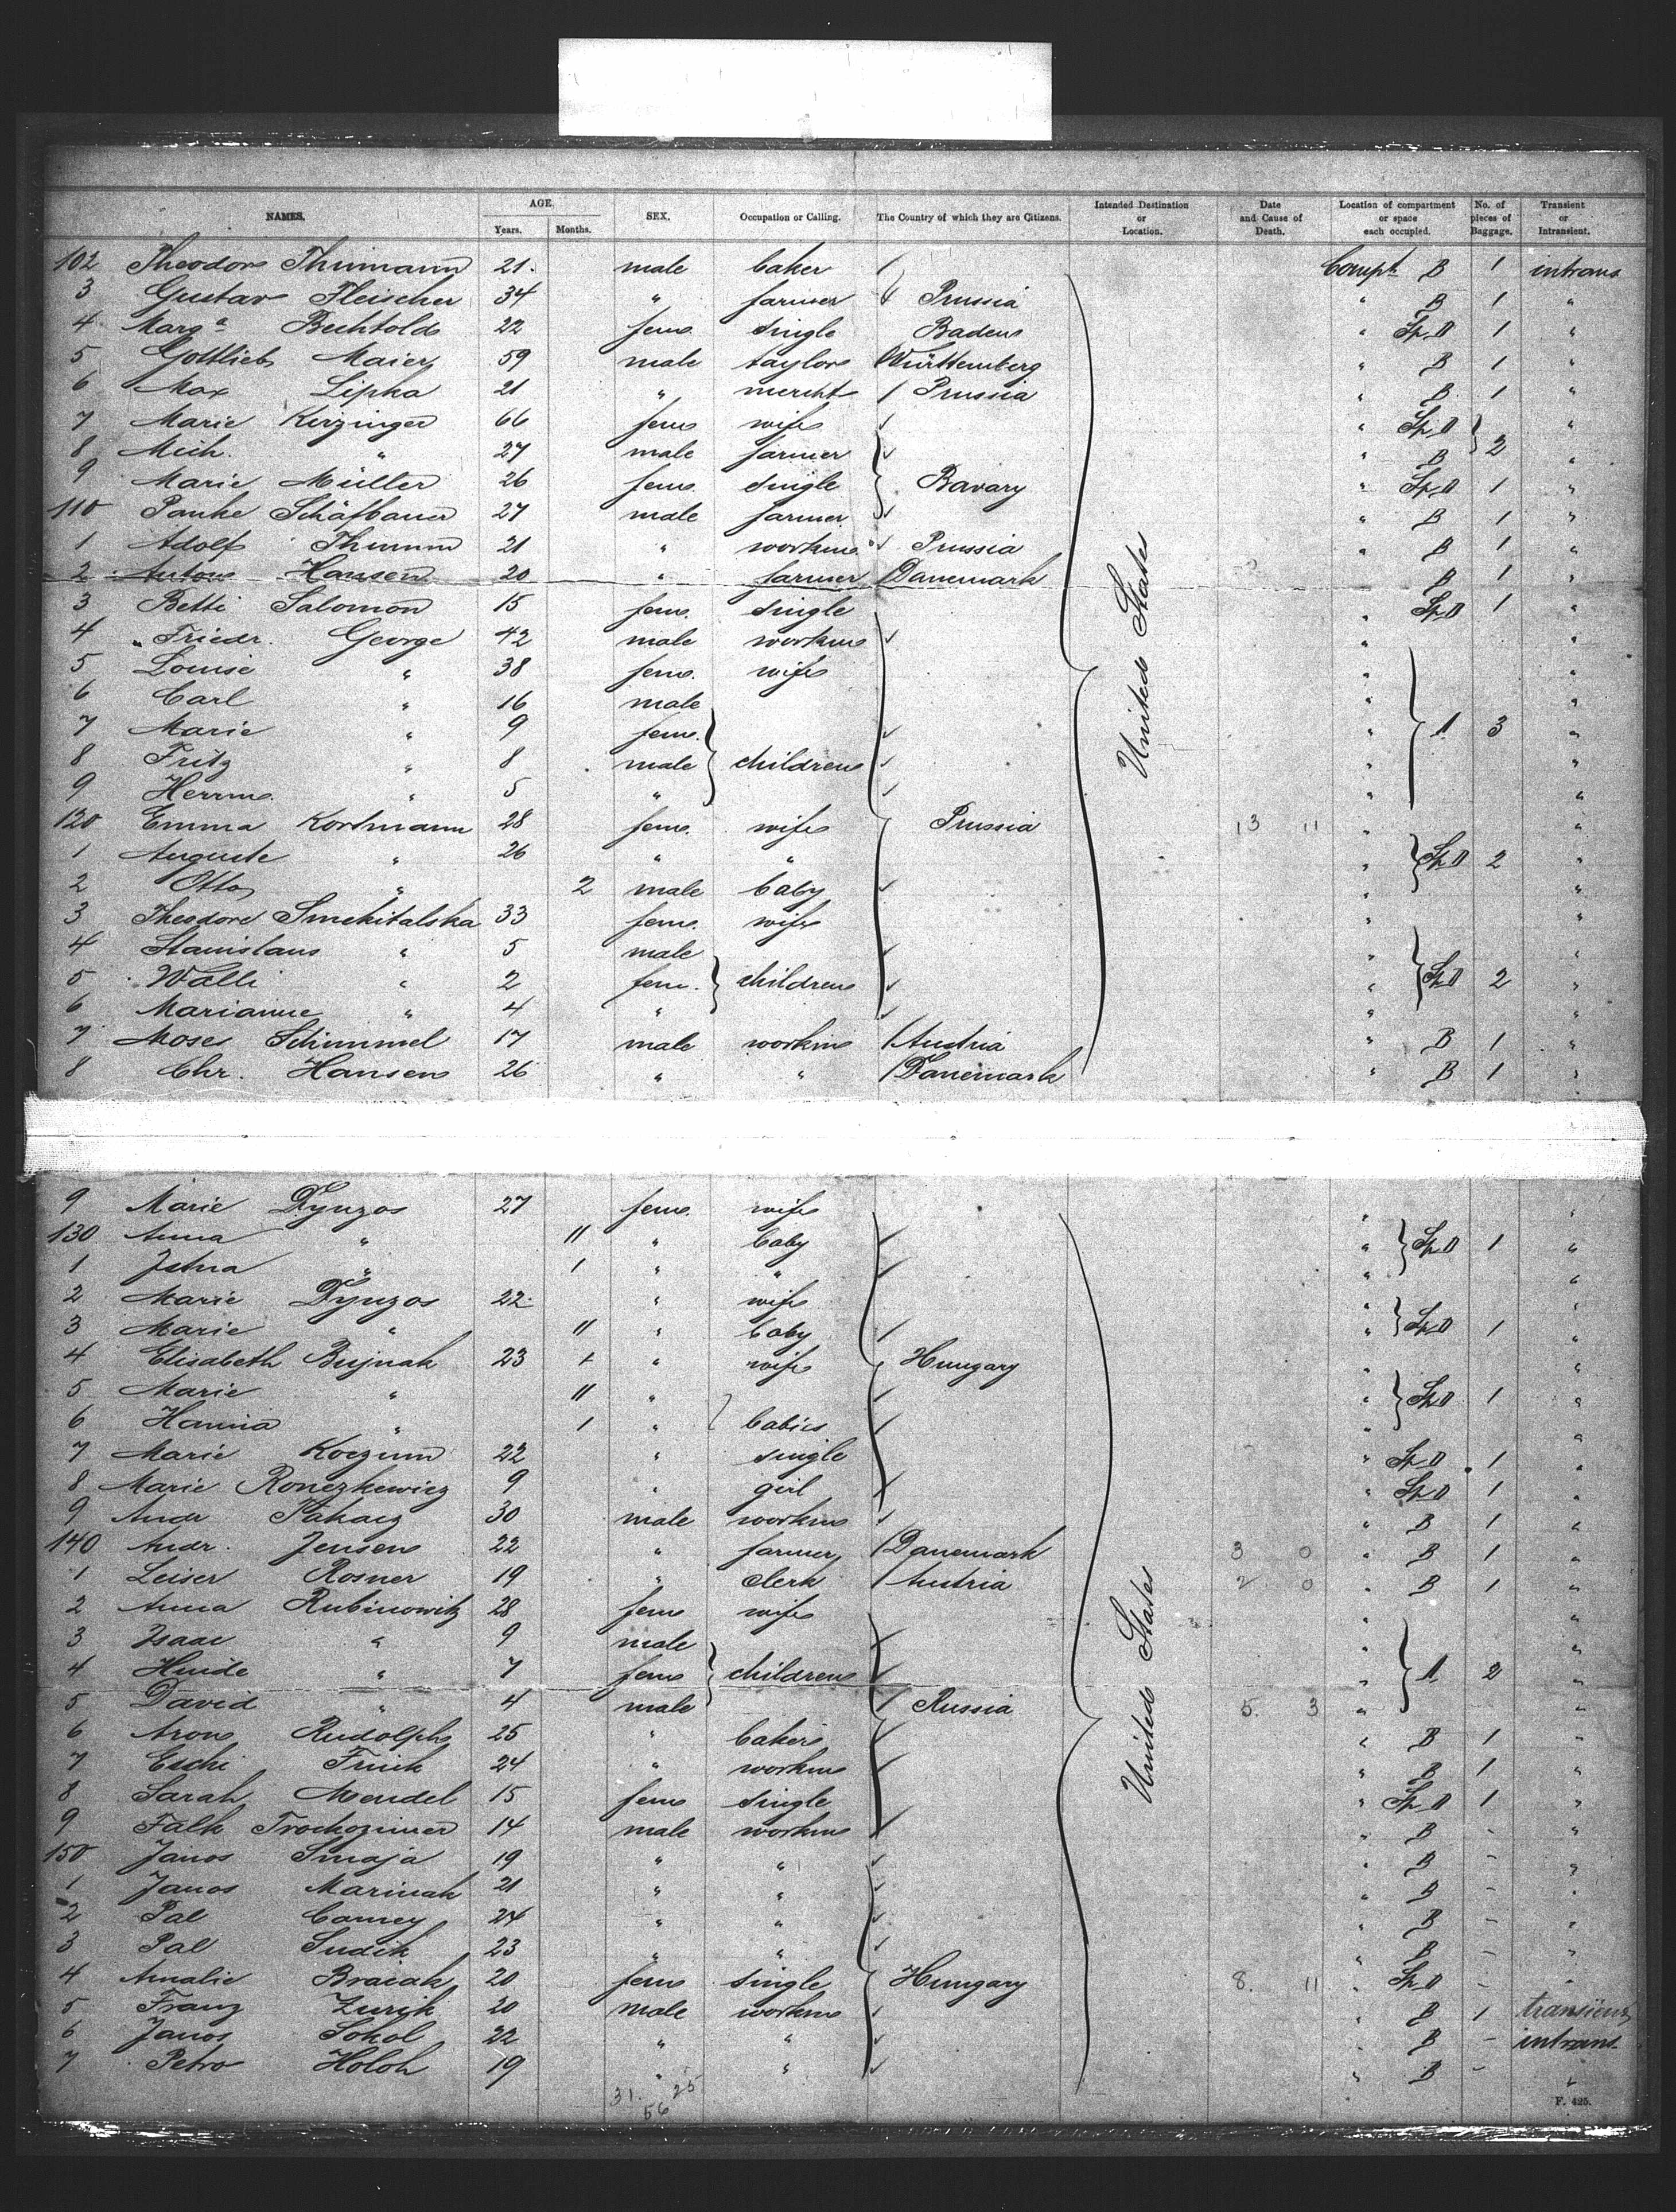 NAMES. AGE. SEX. Occupation or Calling. The Country of which they are Citizens. Intended Destination or Location. Date and Cause of Death. Location of compartment or space each occupied. No. of pieces of Baggage. Transient or Intransient.
Years. Months.
102 Theodore Thumann 21. male baker Compt. B 1 intrans
3 Gustav Fleischer 34 " farmer Prussia " B 1 "
4 Marga Bechtold 22 fem. single Baden " Sp D 1 "
5 Gottlieb Maier 59 male taylor Württemberg " B 1 "
6 Max Lipka 21 " mercht Prussia " B 1 "
7 Marie Kirzinger 66 fem wife " Sp D "
8 Mich. " 27 male farmer " B 2 "
9 Marie Müller 26 fem. single Bavary " Sp D 1 "
110 Schäfbauer 27 male farmer " B 1 "
1 Adolf Thumm 21 " workm. Prussia " B 1 "
2 Anton Hansen 20 " farmer Danemark B 1 "
3 Betti Salomon 15 fem. single " Sp D 1 "
4 Friedr. George 42 male workm " "
5 Louise " 38 fem. wife " "
6 Carl " 16 male " "
7 Marie " 9 fem. " A 3 "
8 Fritz " 8 male children " "
9 Herrm. " 5 " " "
120 Emma Kortmann 28 fem. wife Prussia 13 11 " "
1 Auguste " 26 " " " Sp D 2 "
2 Otto " 2 male baby " "
3 Theodore Smekitalska 33 fem. wife " "
4 Stanislaus " 5 male " "
5 Walli " 2 fem. children " Sp D 2 "
6 Marianne " 4 " " "
7 Moses Schimmel 17 male workm Austria " B 1 "
8 Chr. Hansen 26 " " Danemark " B 1 "
United States
9 Marie Dynzos 27 fem. wife " "
130 Anna " 11 " baby " Sp D 1 "
1 " 1 " " " "
2 Marie Dynzos 22 " wife " "
3 Marie " 11 " baby " Sp D 1 "
4 Elisabeth Bujnak 23 + " wife Hungary " "
5 Marie " 11 " " Sp D 1 "
6 Hanna " 1 " babies " "
7 Marie Koczum 22 " single " Sp D 1 "
8 Marie Ronezkewicz 9 " girl " Sp D 1 "
9 Andr Pakacz 30 male workm " B 1 "
140 Andr. Jensen 22 " farmer Danemark 3 0 " B 1 "
1 Leiser Rosner 19 " clerk Austria 2 0 " B 1 "
2 Anna Rubinowitz 28 fem wife " "
3 Isaac " 9 male " "
4 Hinde " 7 fem children " A 2 "
5 David " 4 male Russia 5. 3 " "
6 Aron Rudolph 25 " baker " B 1 "
7 Eschi Frick 24 " workm " B 1 "
8 Sarah Mendel 15 fem single " Sp D 1 "
9 Falk 14 male workm " B - "
150 Janos Smaja 19 " " " B - "
1 Janos Marinak 21 " " " B - "
2 Pal 24 " " B - "
3 Pal Sudik 23 " " " B - "
4 Amalie Braiak 20 fem single Hungary 8. 11 " Sp D - "
5 Franz Zurik 20 male workm " B 1 transient
6 Janos Sokol 22 " " " B - intrans
7 Petro Holoh 19 " " " B - "
United States
31. 25
56
F. 425.